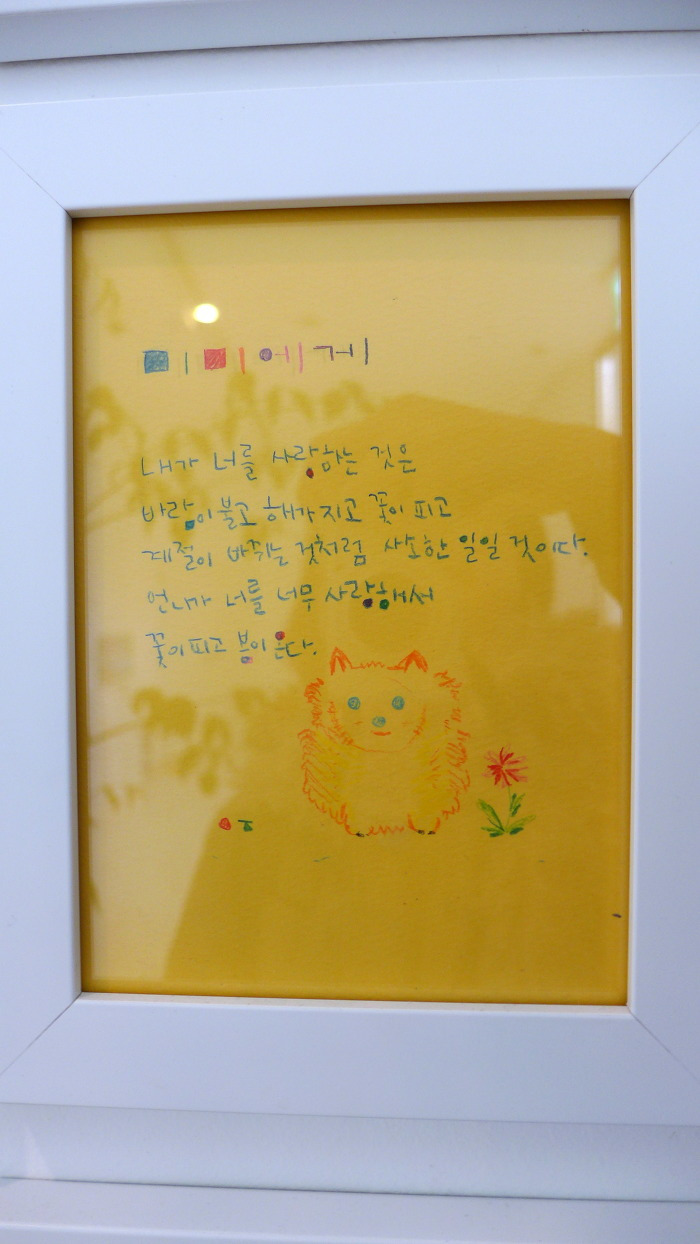 미미에게
내가 너를 사랑하는 것은
바람이 불고 해가 지고 꽃이 피고
계절이 바뀌는 것처럼 사소한 일일 것이다.
언니가 너를 너무 사랑해서
꽃이 피고 봄이 온다.